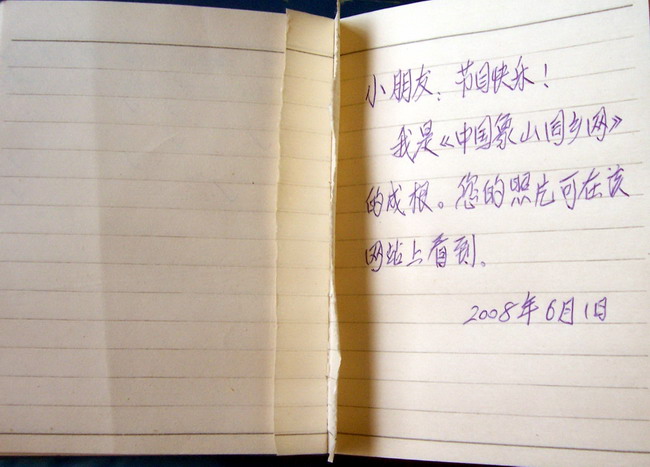 小朋友：节日快乐！
我是《中国象山同乡网》
的成根。您的照片可在该
网站上看到。
2008年6月1日